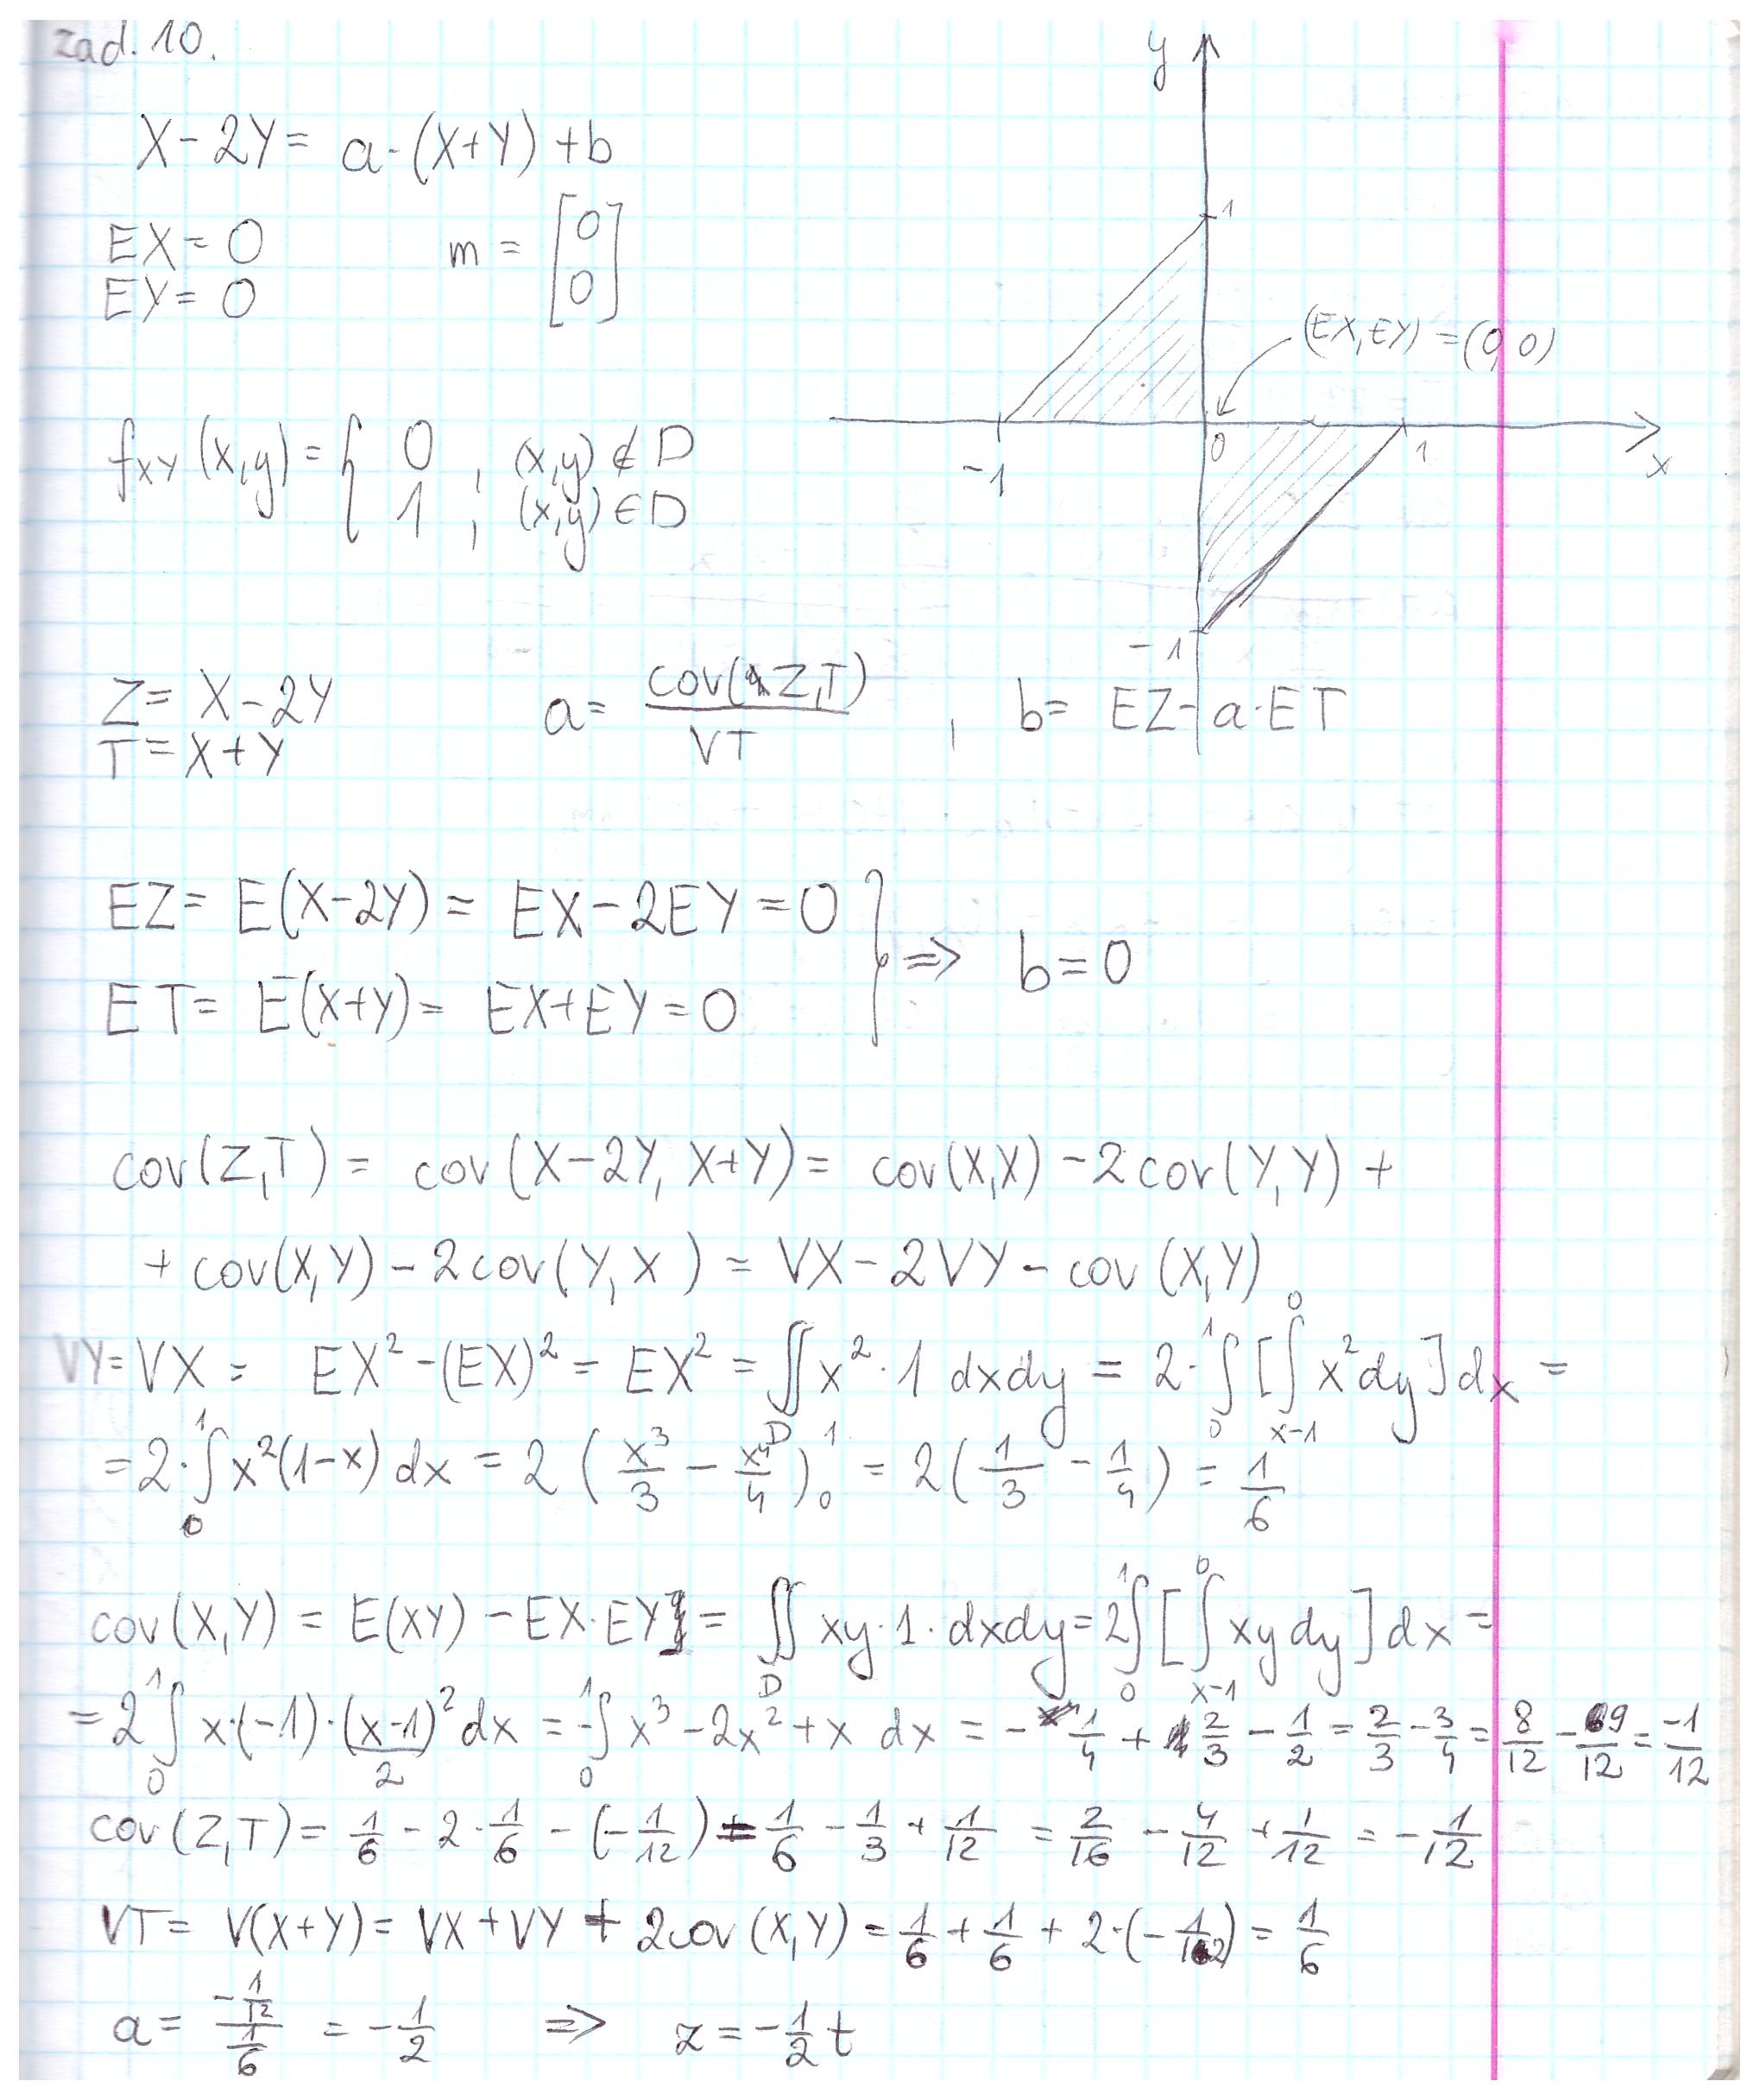 zad. 10.
y
X - 2Y = a·(X+Y) + b
1
EX = 0
m = [0 0]
EY = 0
(EX, EY) = (0, 0)
f_XY (x,y) = { 0 , (x,y) ∉ D
1 , (x,y) ∈ D
-1
0
1
x
-1
Z = X - 2Y
T = X + Y
a = cov(Z,T) / VT , b = EZ - a·ET
EZ = E(X-2Y) = EX - 2EY = 0
ET = E(X+Y) = EX + EY = 0
} ⇒ b = 0
cov(Z,T) = cov(X-2Y, X+Y) = cov(X,X) - 2cov(Y,Y) +
+ cov(X,Y) - 2cov(Y,X) = VX - 2VY - cov(X,Y)
VY = VX = EX² - (EX)² = EX² = ∬_D x²·1 dxdy = 2·∫_0^1 [∫_{x-1}^0 x²dy] dx =
= 2·∫_0^1 x²(1-x) dx = 2 (x³/3 - x⁴/4)_0^1 = 2(1/3 - 1/4) = 1/6
cov(X,Y) = E(XY) - EX·EY = ∬_D xy·1·dxdy = 2∫_0^1 [∫_{x-1}^0 xydy] dx =
= 2∫_0^1 x·(-1)·(x-1)²/2 dx = -∫_0^1 x³ - 2x² + x dx = -1/4 + 2/3 - 1/2 = 2/3 - 3/4 = 8/12 - 9/12 = -1/12
cov(Z,T) = 1/6 - 2·1/6 - (-1/12) = 1/6 - 1/3 + 1/12 = 2/16 - 4/12 + 1/12 = -1/12
VT = V(X+Y) = VX + VY + 2cov(X,Y) = 1/6 + 1/6 + 2·(-1/12) = 1/6
a = (-1/12)/(1/6) = -1/2 ⇒ z = -1/2 t